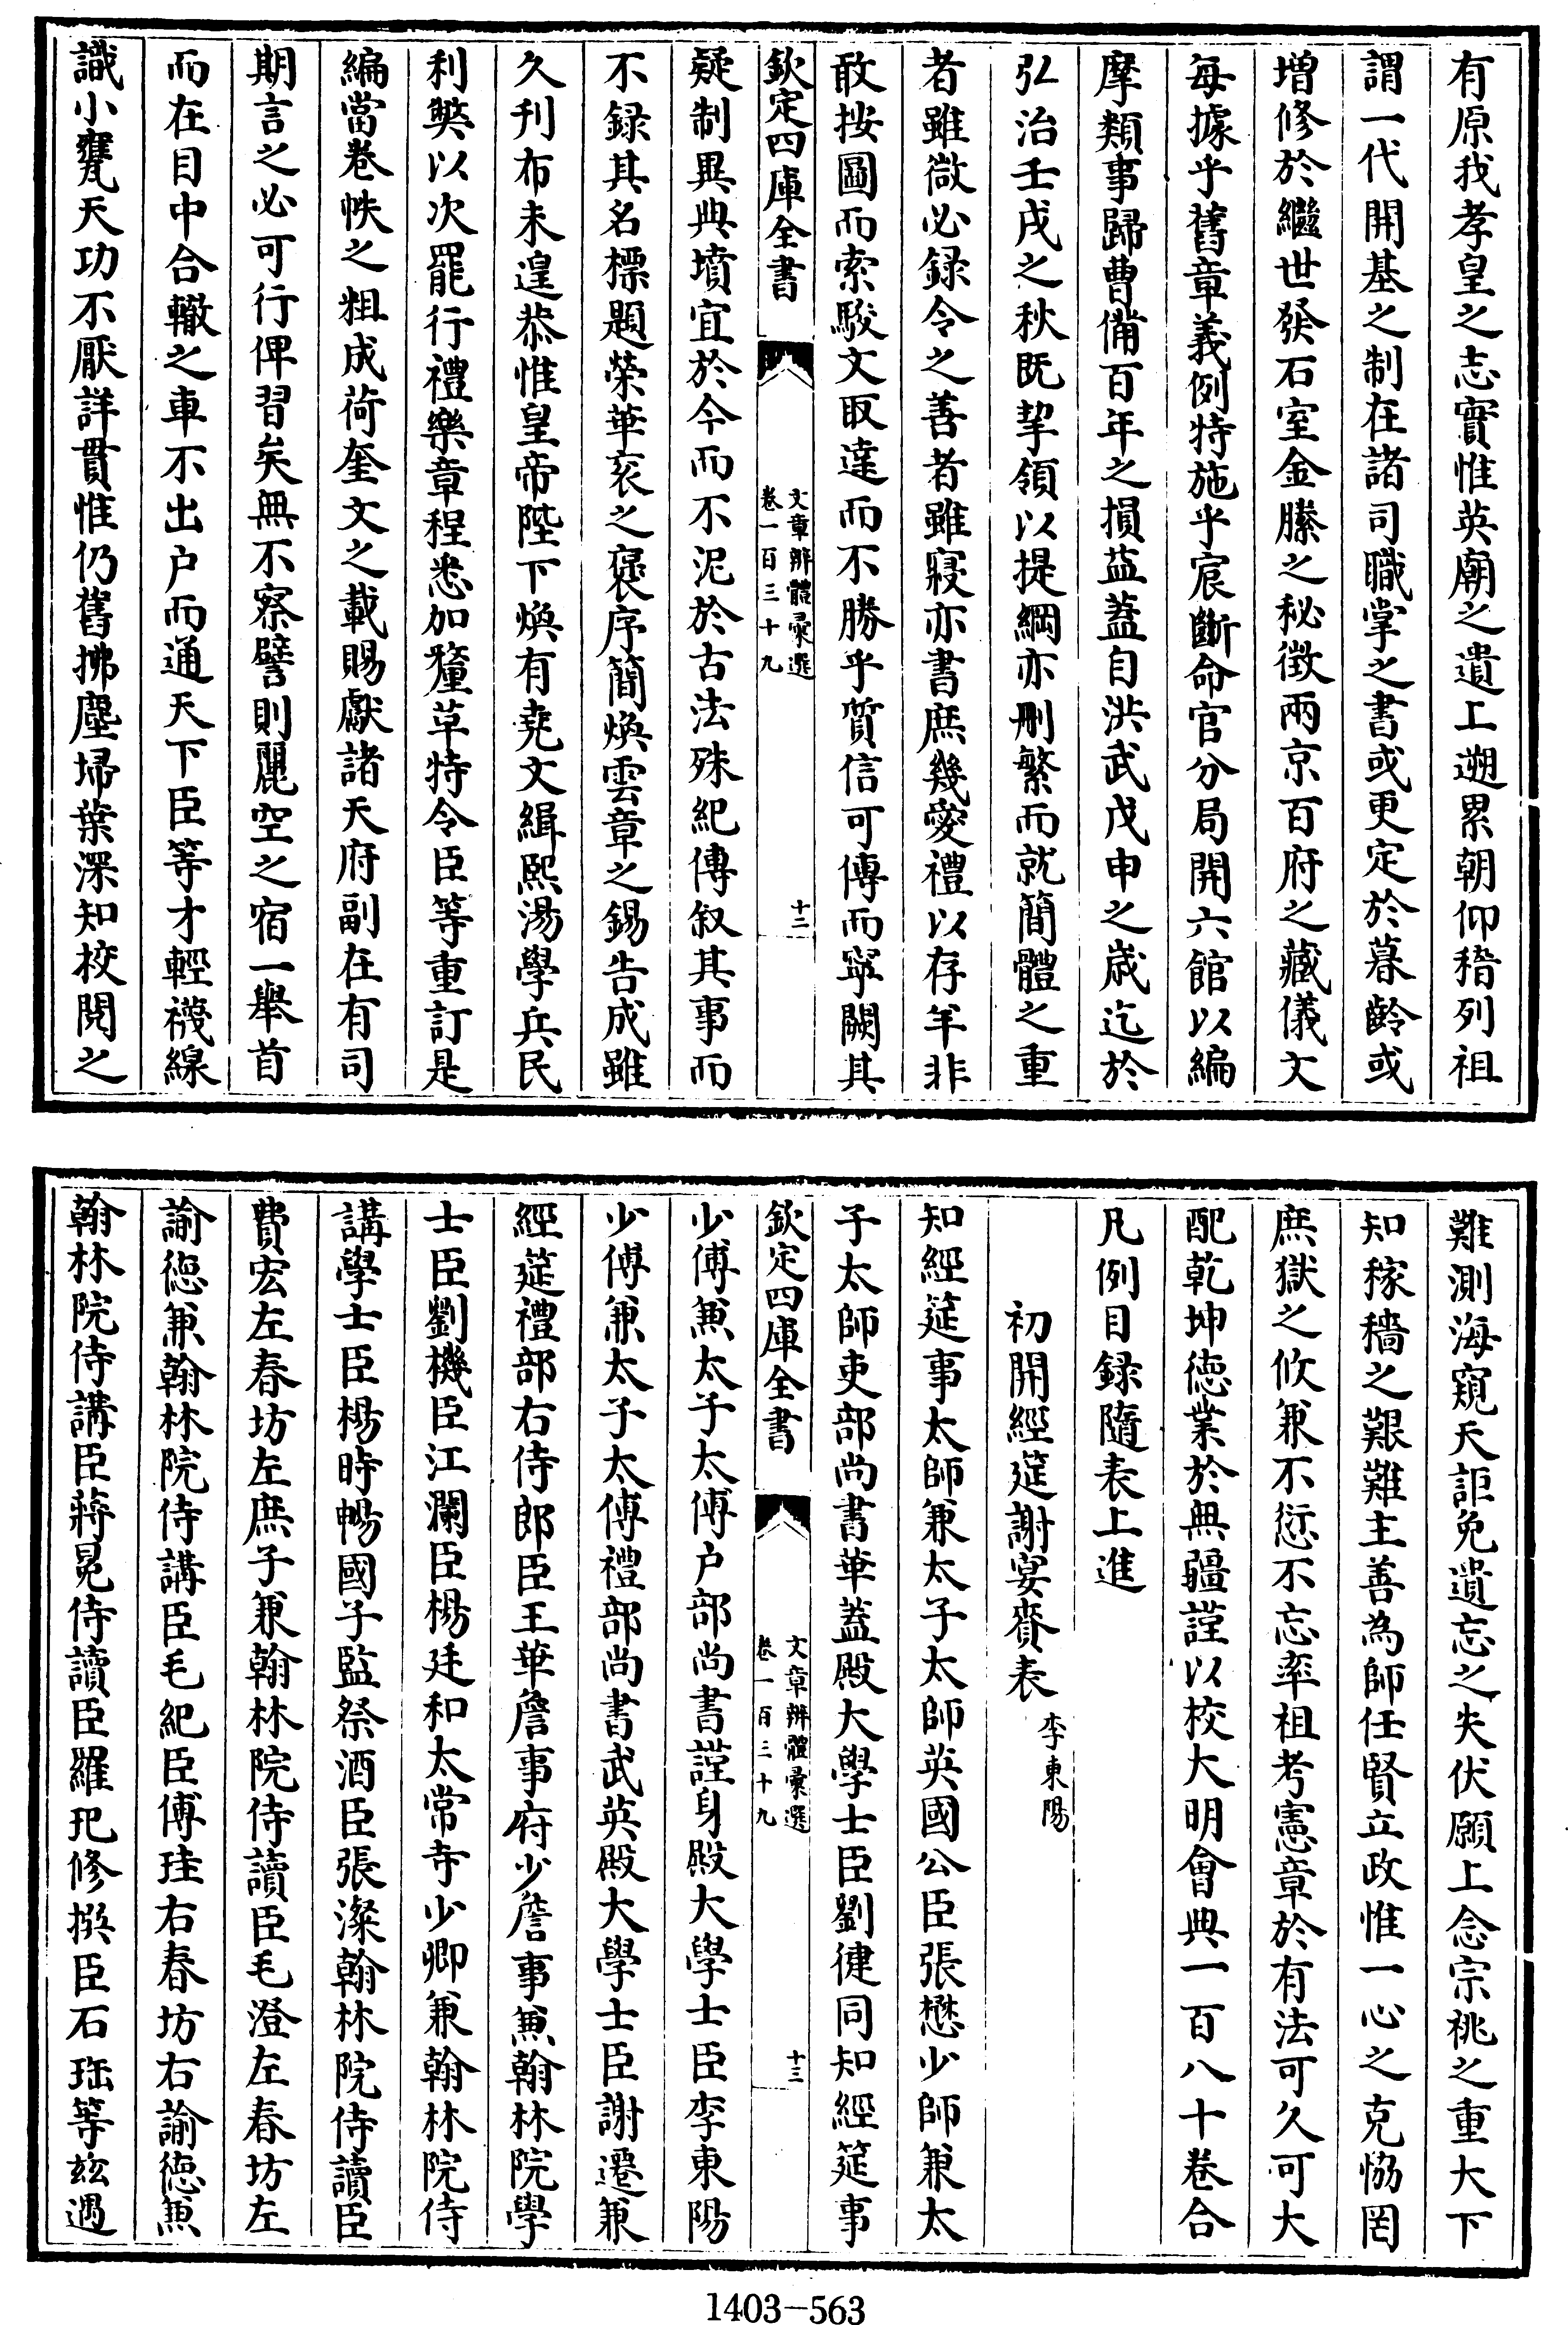 有原我孝皇之志實惟英廟之遺上遡累朝仰稽列祖
謂一代開基之制在諸司職掌之書或更定於暮齡或
增修於繼世發石室金縢之秘徴兩京百府之藏儀文
每據乎舊章義例特施乎宸斷命官分局開六館以編
摩類事歸曹備百年之損益蓋自洪武戊申之歲迄於
弘治壬戌之秋既挈領以提綱亦刪繁而就簡體之重
者雖微必録令之善者雖寢亦書庶幾愛禮以存羊非
敢按圖而索駿文取達而不勝乎質信可傳而寧闕其
欽定四庫全書
文章辨體彙選
卷一百三十九
十二
疑制異典墳宜於今而不泥於古法殊紀傳叙其事而
不録其名標題榮華衮之褒序簡煥雲章之錫告成雖
久刋布未遑恭惟皇帝陛下煥有堯文緝熙湯學兵民
利獘以次罷行禮樂章程悉加釐革特令臣等重訂是
編當卷帙之粗成荷奎文之載賜獻諸天府副在有司
期言之必可行俾習矣無不察譬則麗空之宿一舉首
而在目中合轍之車不出户而通天下臣等才輕襪線
識小甕天功不厭詳貫惟仍舊拂塵埽葉深知校閱之
難測海窺天詎免遺忘之失伏願上念宗祧之重大下
知稼穡之艱難主善為師任賢立政惟一心之克恊罔
庶獄之攸兼不愆不忘率祖考憲章於有法可久可大
配乾坤徳業於無疆謹以校大明會典一百八十卷合
凡例目録隨表上進
初開經筵謝宴賚表
李東陽
知經筵事太師兼太子太師英國公臣張懋少師兼太
子太師吏部尚書華蓋殿大學士臣劉健同知經筵事
欽定四庫全書
文章辨體彙選
卷一百三十九
十三
少傅兼太子太傅户部尚書謹身殿大學士臣李東陽
少傅兼太子太傅禮部尚書武英殿大學士臣謝遷兼
經筵禮部右侍郎臣王華詹事府少詹事兼翰林院學
士臣劉機臣江瀾臣楊廷和太常寺少卿兼翰林院侍
講學士臣楊時暢國子監祭酒臣張澯翰林院侍讀臣
費宏左春坊左庶子兼翰林院侍讀臣毛澄左春坊左
諭徳兼翰林院侍講臣毛紀臣傅珪右春坊右諭徳兼
翰林院侍講臣蔣冕侍讀臣羅玘修撰臣石珤等兹遇
1403-563